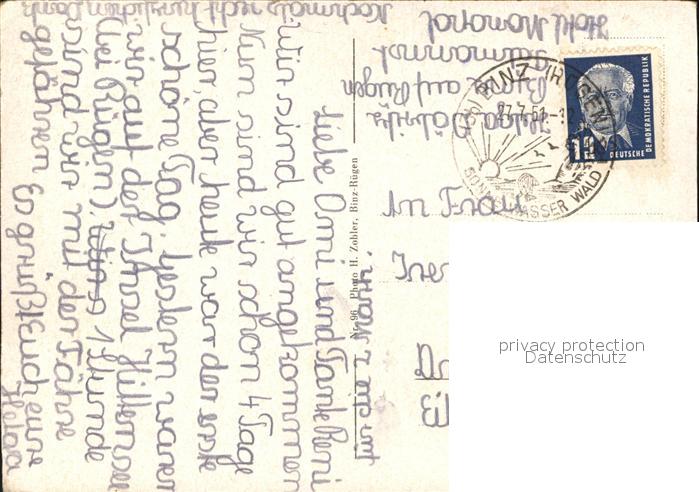 Liebe Omi und Tante Reni
Wir sind gut angekommen
Nun sind wir schon 4 Tage
hier, aber heute war der erste
schöne Tag. Gestern waren
wir auf der Insel Hiddensee
(bei Rügen) 1 Stunde
sind wir mit der Fähre
gefahren Es grüßt Euch eure
Helga
Nochmals recht herzlichen Dank
Helga
Binz auf Rügen
Hotel Monopol
Nr. 96 Photo H. Zobler, Binz-Rügen
BINZ (RÜGEN)
27.7.51
SONNE WASSER WALD
12
DEUTSCHE
DEMOKRATISCHE REPUBLIK
An Frau
privacy protection
Datenschutz